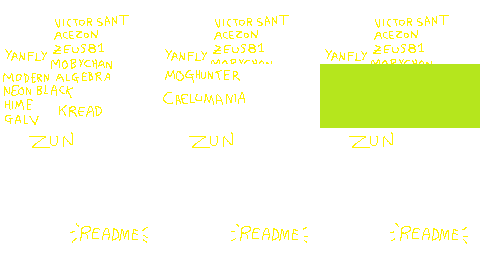 VICTOR SANT
ACEZON
ZEUS81
YANFLY
MOBYCHAN
MODERN ALGEBRA
NEON BLACK
HIME
GALV
KREAD
ZUN
README
VICTOR SANT
ACEZON
ZEUS81
YANFLY
MOBYCHAN
MOGHUNTER
CRELUMAMA
ZUN
README
VICTOR SANT
ACEZON
ZEUS81
YANFLY
MOBYCHAN
ZUN
README